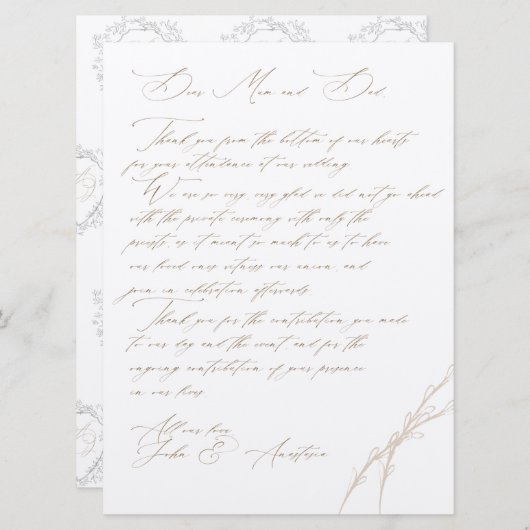 Dear Mum and Dad,
Thank you from the bottom of our hearts
for your attendance at our wedding
We are so very, very glad we did not go ahead
with the private ceremony with only the
priests, as it meant so much to us to have
our loved ones witness our union, and
join in celebration afterwards.
Thank you for the contribution you made
to our day and the event, and for the
ongoing contribution of your presence
in our lives
All our love
John & Anastasia